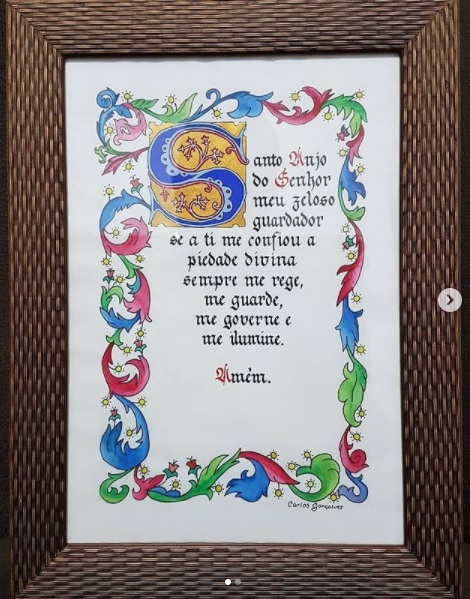 Santo Anjo
do Senhor
meu zeloso
guardador
se a ti me confiou a
piedade divina
sempre me rege,
me guarde,
me governe e
me ilumine.
Amém.
Carlos Gonçalves